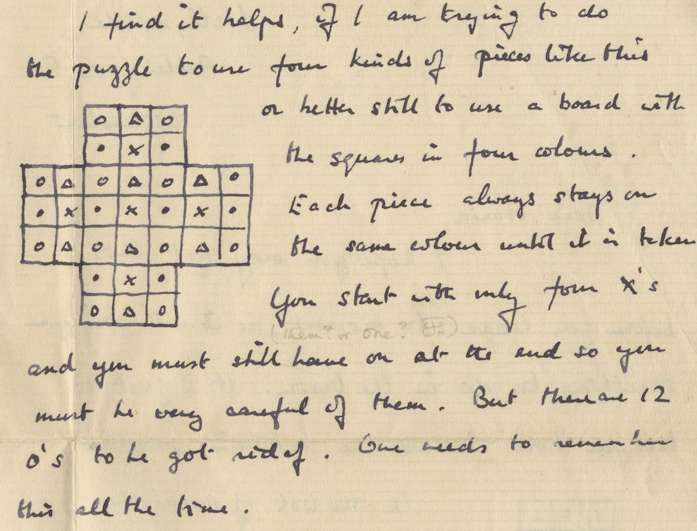 I find it helps, if I am trying to do
the puzzle to use four kinds of pieces like this
or better still to use a board with
the squares in four colours.
Each piece always stays on
the same colour until it is taken
You start with only four x's
(them? or one?
and you must still have on at the end so you
must be very careful of them. But there are 12
o's to be got rid of. One needs to remember
this all the time.